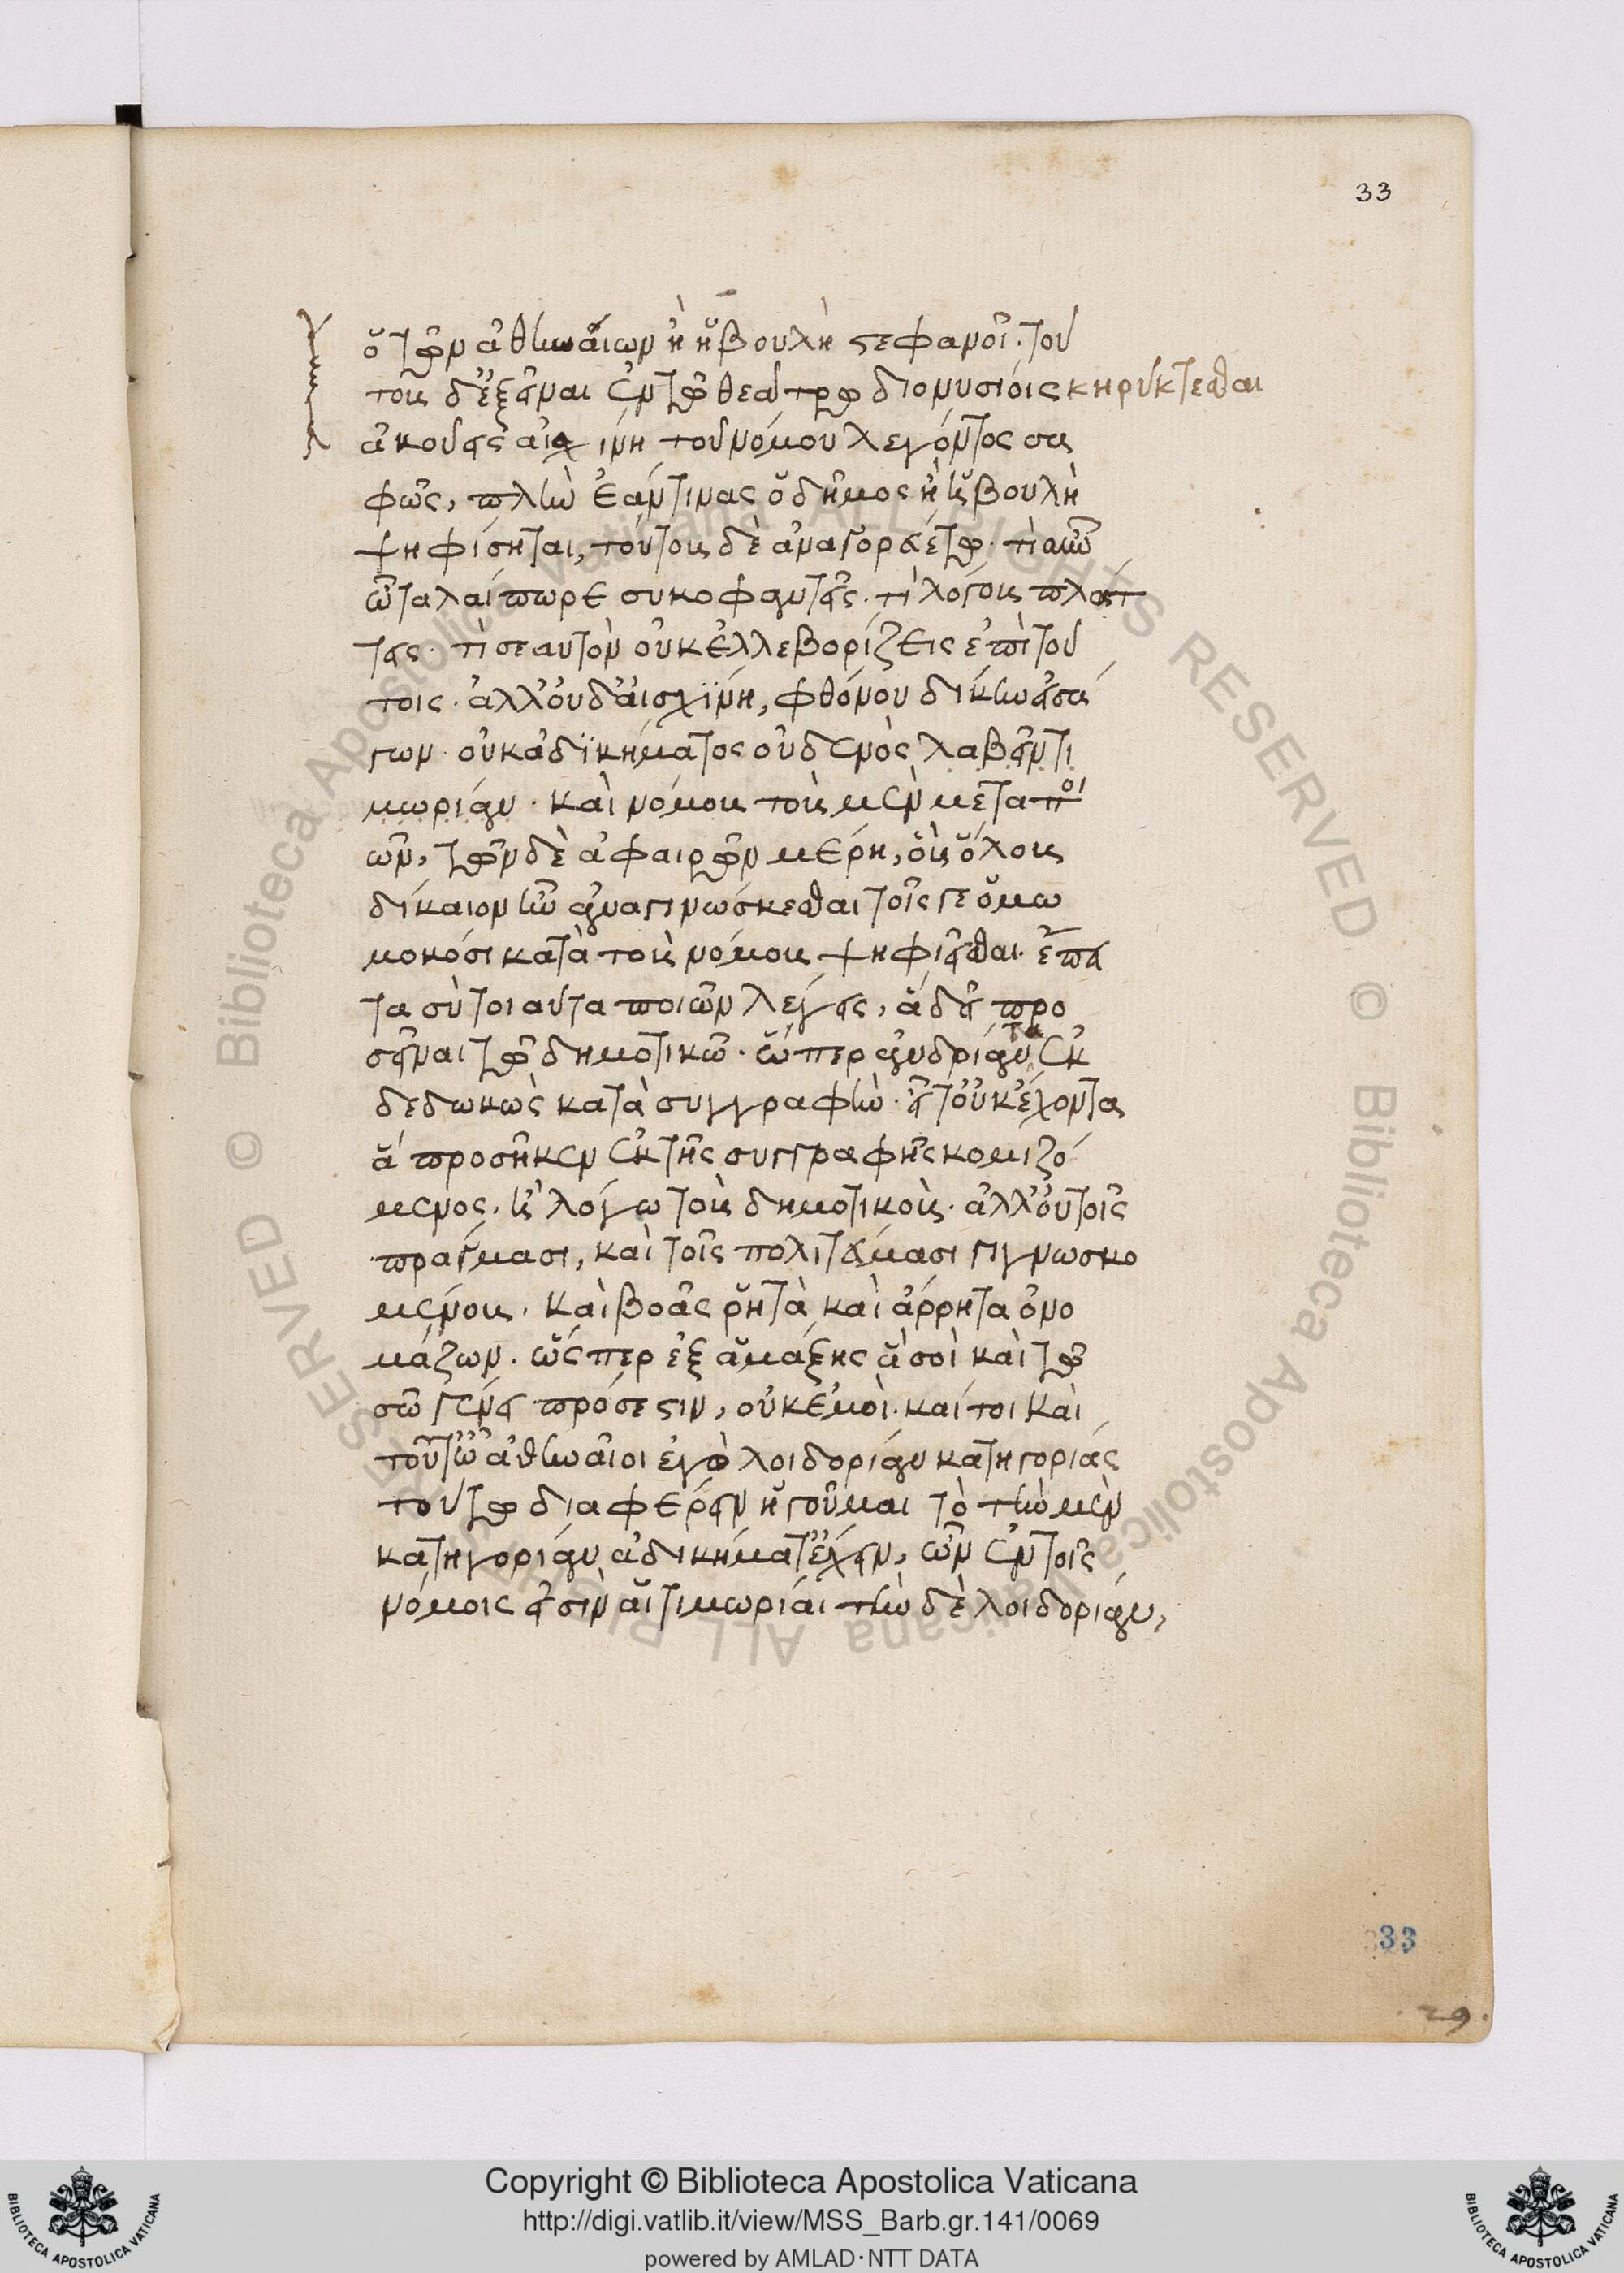 33
ὁ τῶν ἀθηναίων ἢ ἡ βουλὴ στεφανοῖ· τού
τους δ' ἐξεῖναι ἐν τῷ θεάτρῳ διονυσίοις κηρύκτεσθαι
ἀκούεις αἰσχίνη τοῦ νόμου λέγοντος σα
φῶς, πλὴν ἐάν τινας ὁ δῆμος ἢ ἡ βουλὴ
ψηφίσηται, τούτους δὲ ἀναγορευέτω· τί οὖν
ὦ ταλαίπωρε συκοφαντεῖς· τί λόγους πλάτ
τεις· τί σεαυτὸν οὐκ ἐλλεβορίζεις ἐπὶ τού
τοις· ἀλλ' οὐδ' αἰσχύνη, φθόνου δίκην εἰσά
γων· οὐκ ἀδικήματος οὐδενὸς λαβεῖν τι
μωρίαν· καὶ νόμους τοὺς μὲν μεταποι
ῶν, τῶν δὲ ἀφαιρῶν μέρη, οὓς ὅλους
δίκαιον ἦν ἀναγινώσκεσθαι τοῖς γε ὀμω
μοκόσι κατὰ τοὺς νόμους ψηφιεῖσθαι· ἔπει
τα σὺ τοιαῦτα ποιῶν λέγεις, ἃ δεῖ προ
σεῖναι τῷ δημοτικῷ· ὥσπερ ἀνδριάντα ἐκ
δεδωκὼς κατὰ συγγραφὴν· εἶτ' οὐκ ἔχοντα
ἃ προσῆκεν ἐκ τῆς συγγραφῆς κομιζό
μενος· ἢ λόγω τοὺς δημοτικοὺς· ἀλλ' οὐ τοῖς
πράγμασι, καὶ τοῖς πολιτεύμασι γιγνωσκο
μένους· καὶ βοᾶς ῥητὰ καὶ ἄρρητα ὀνο
μάζων· ὥσπερ ἐξ ἁμάξης ἃ σοὶ καὶ τῷ
σῷ γένει πρόσεστιν, οὐκ ἐμοὶ· καίτοι καὶ
τοῦτ' ὦ ἀθηναῖοι ἐγὼ λοιδορίαν κατηγορίας
τούτω διαφέρειν ἡγοῦμαι τὸ τὴν μὲν
κατηγορίαν ἀδικήματ' ἔχειν, ὧν ἐν τοῖς
νόμοις εἰσὶν αἱ τιμωρίαι τὴν δὲ λοιδορίαν,
33
29.
Copyright © Biblioteca Apostolica Vaticana
http://digi.vatlib.it/view/MSS_Barb.gr.141/0069
powered by AMLAD·NTT DATA
BIBLIOTECA APOSTOLICA VATICANA
BIBLIOTECA APOSTOLICA VATICANA
© Biblioteca Apostolica Vaticana ALL RIGHTS RESERVED © Biblioteca Apostolica Vaticana ALL RIGHTS RESERVED